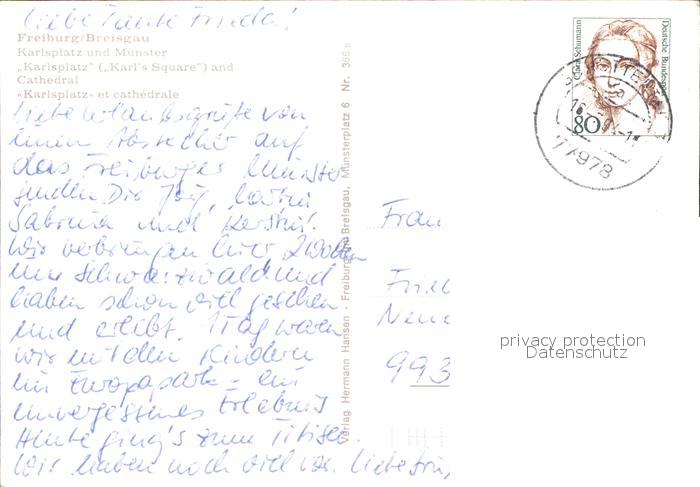 Liebe Tante Frieda!
Freiburg/Breisgau
Karlsplatz und Münster
„Karlsplatz" („Karl's Square") and
Cathedral
«Karlsplatz» et cathédrale
Liebe Urlaubsgrüße von
einem Abstecher auf
das Freiburger Münster
senden Dir Jörg,
Sabrina und Kerstin.
Wir verbringen hier 2 Wochen
im Schwarzwald und
haben schon viel gesehen
und erlebt. 1 Tag waren
wir mit den Kindern
im Europapark - ein
unvergessenes Erlebnis
Heute ging's zum Titisee.
Wir haben noch viel vor. Liebe
Verlag Hermann Hansen - Freiburg im Breisgau, Münsterplatz 6 Nr. 366
Clara Schumann
Deutsche Bundespost
80
77978
Frau
Fried
Neue
993
privacy protection
Datenschutz